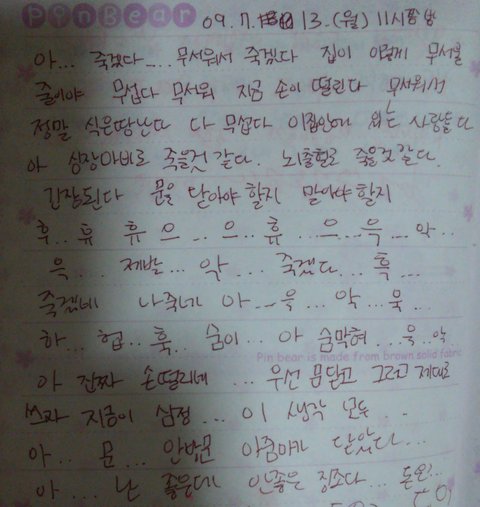 PinBear
09. 7. 13. (월) 11시
아... 죽겠다.... 무서워서 죽겠다 집이 이렇게 무서울
줄이야 무섭다 무서워 지금 손이 떨린다 무서워서
정말 식은땀난다 다 무섭다 이집안에 있는 사람들 다
아 심장마비로 죽을것 같다. 뇌출혈로 죽을것 같다.
긴장된다 문을 닫아야 할지 말아야 할지
후.. 휴 휴 으... 으.. 휴 ...으...윽... 악..
윽... 제발... 악... 죽겠다... 흑...
죽겠네 나죽네 아...윽... 악...윽..
하... 헙.. 훅.. 숨이.. 아 숨막혀...윽..악.
Pin bear is made from brown solid fabric
아 진짜 손떨리네 ... 우선 문닫고 그리고 제대로
쓰자 지금이 심정... 이 생각 모두...
아... 문... 안방문 아줌마가 닫았다...
아.... 난 좋은데 안좋은 징조다...